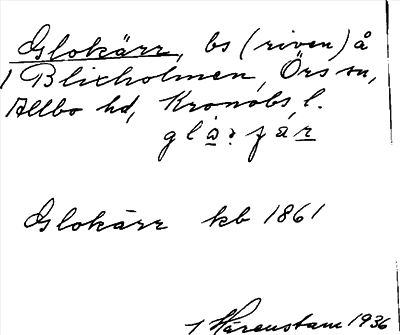 Glokärr, bs (riven) å
Blixholmen, Örs sn,
Allbo hd, Kronobs l.
Glokärr kb 1861
Härenstam 1936